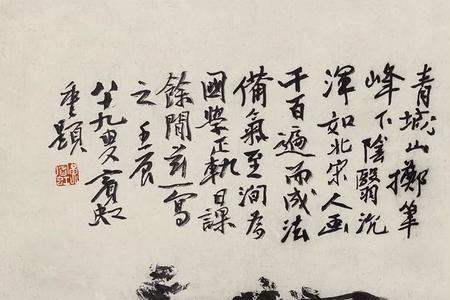 青城山擲筆
峰下陰翳沉
渾如北宋人画
千百遍而成法
備氣至洵為
國學正軌日課
餘閒寫
之壬辰
八十九叟賓虹
重題